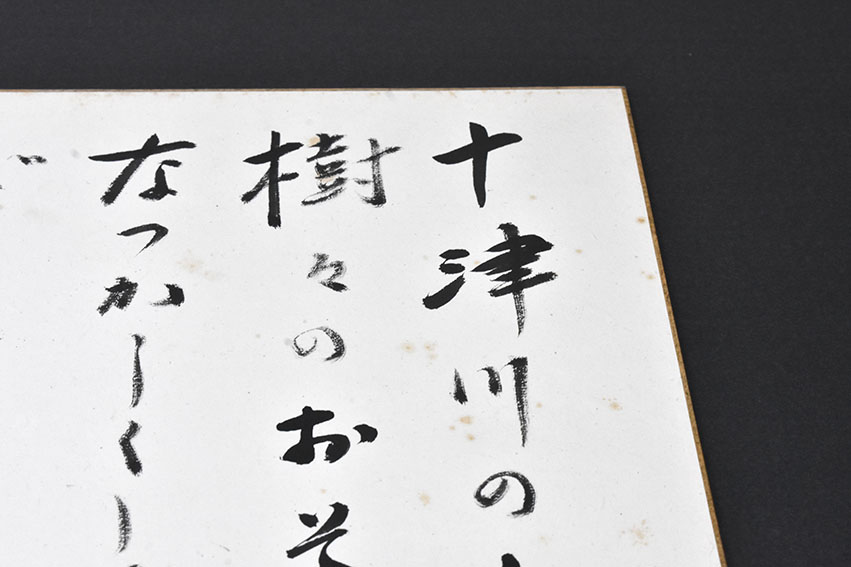 十津川の
樹々のおそ
なつかしくし